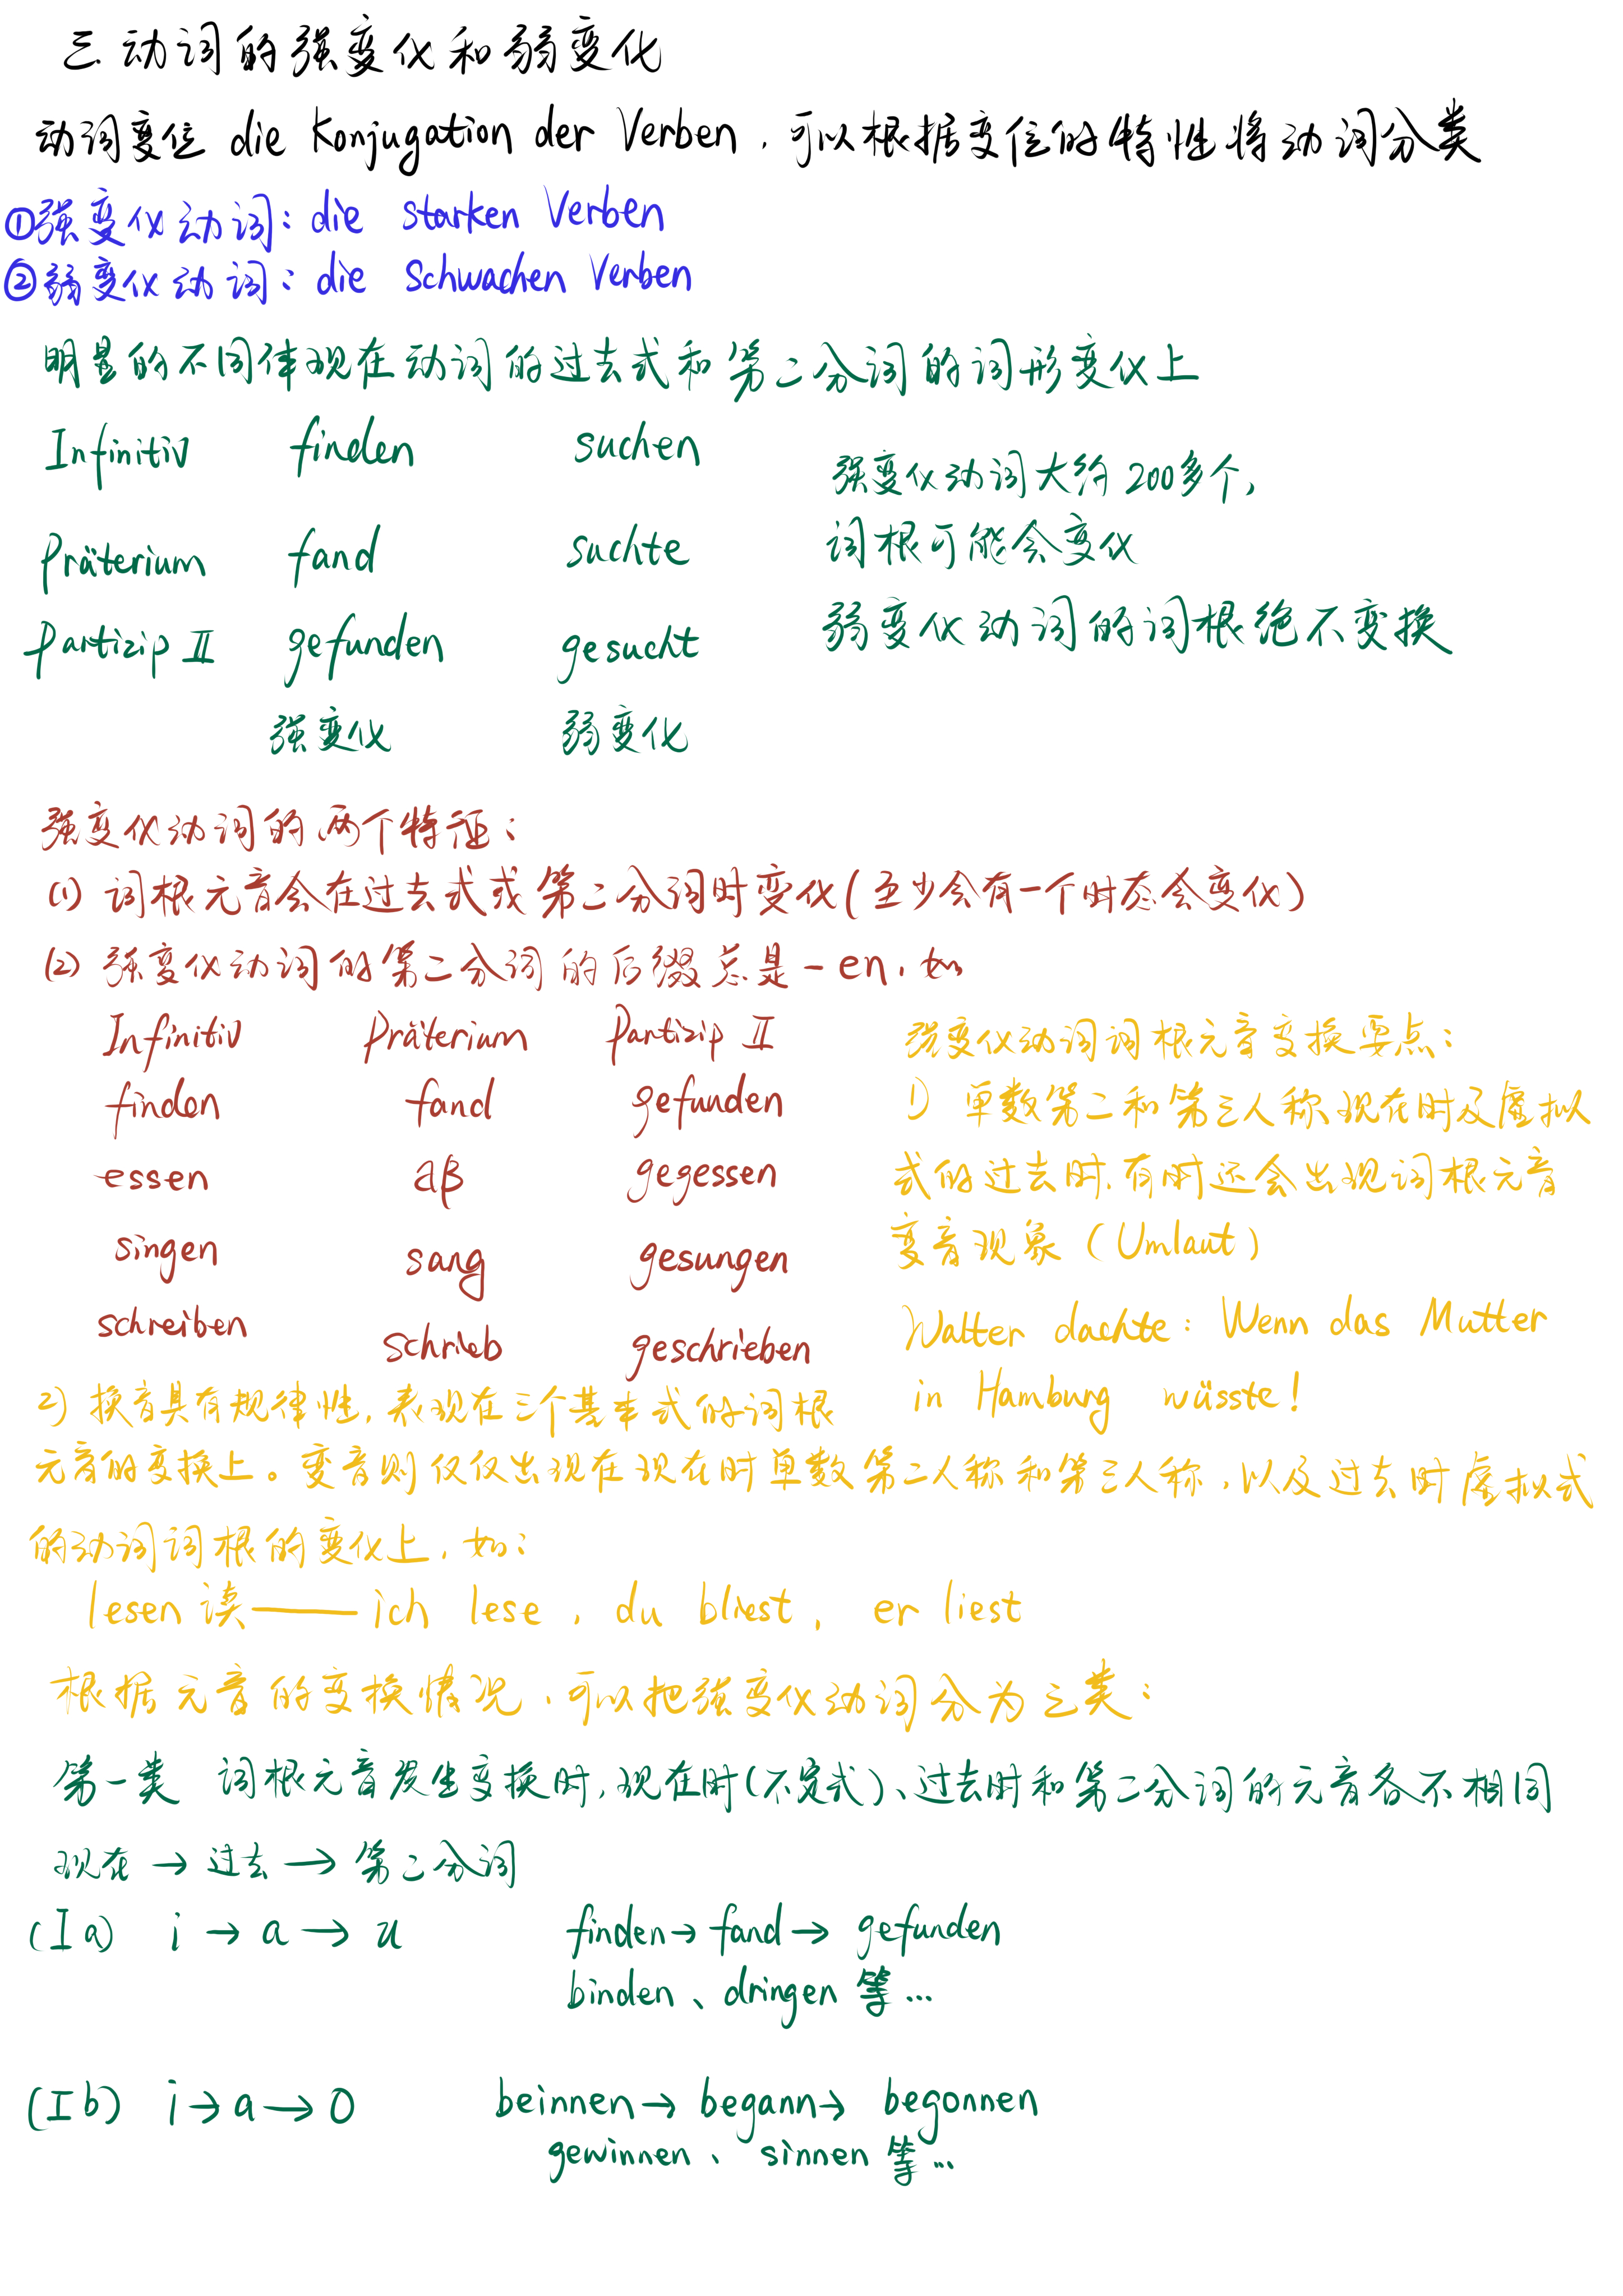 三.动词的强变化和弱变化
动词变位 die Konjugation der Verben,可以根据变位的特性将动词分类
①强变化动词:die starken Verben
②弱变化动词:die schwachen Verben
明显的不同体现在动词的过去式和第二分词的词形变化上
Infinitiv finden suchen
强变化动词大约200多个,
Präterium fand suchte
词根可能会变化
Partizip II gefunden gesucht
弱变化动词的词根绝不变换
强变化 弱变化
强变化动词的两个特征:
(1) 词根元音会在过去式或第二分词时变化(至少会有一个时态会变化)
(2) 强变化动词的第二分词的后缀总是-en,如
Infinitiv Präterium Partizip II
finden fand gefunden
essen aß gegessen
singen sang gesungen
schreiben schrieb geschrieben
强变化动词词根元音变换要点:
1) 单数第二和第三人称现在时及虚拟
式的过去时,有时还会出现词根元音
变音现象(Umlaut)
Walter dachte: Wenn das Mutter
in Hamburg wüsste!
2) 换音具有规律性,表现在三个基本式的词根
元音的变换上。变音则仅仅出现在现在时单数第二人称和第三人称,以及过去时虚拟式
的动词词根的变化上,如:
lesen 读——ich lese, du bliest, er liest
根据元音的变换情况,可以把强变化动词分为三类:
第一类 词根元音发生变换时,现在时(不定式)、过去时和第二分词的元音各不相同
现在→过去→第二分词
(Ia) i→a→u finden→fand→gefunden
binden、dringen等...
(Ib) i→a→o beinnen→begann→begonnen
gewinnen、sinnen等...